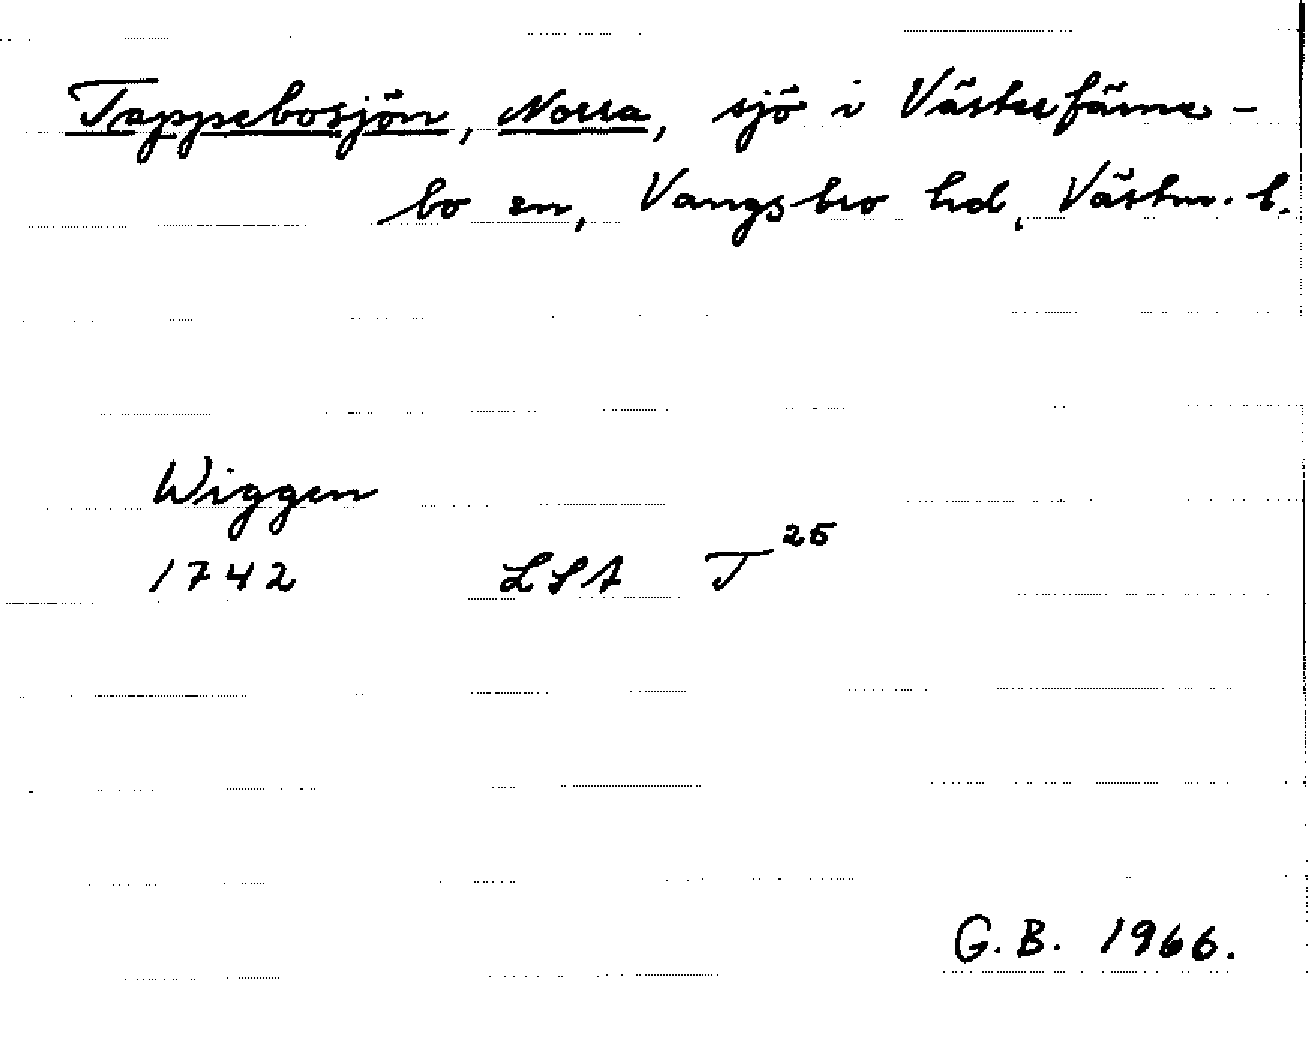 Tappebosjön, Norra, sjö i Västerfärne-
bo sn, Vangsbro hd, Västm. l.
Wiggen
1742 LSA T25
G.B. 1966.